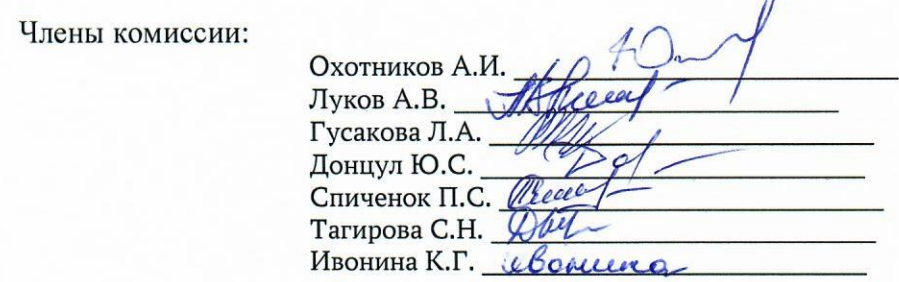 Члены комиссии:
Охотников А.И.
Луков А.В.
Гусакова Л.А.
Донцул Ю.С.
Спиченок П.С.
Тагирова С.Н.
Ивонина К.Г. Ивонина